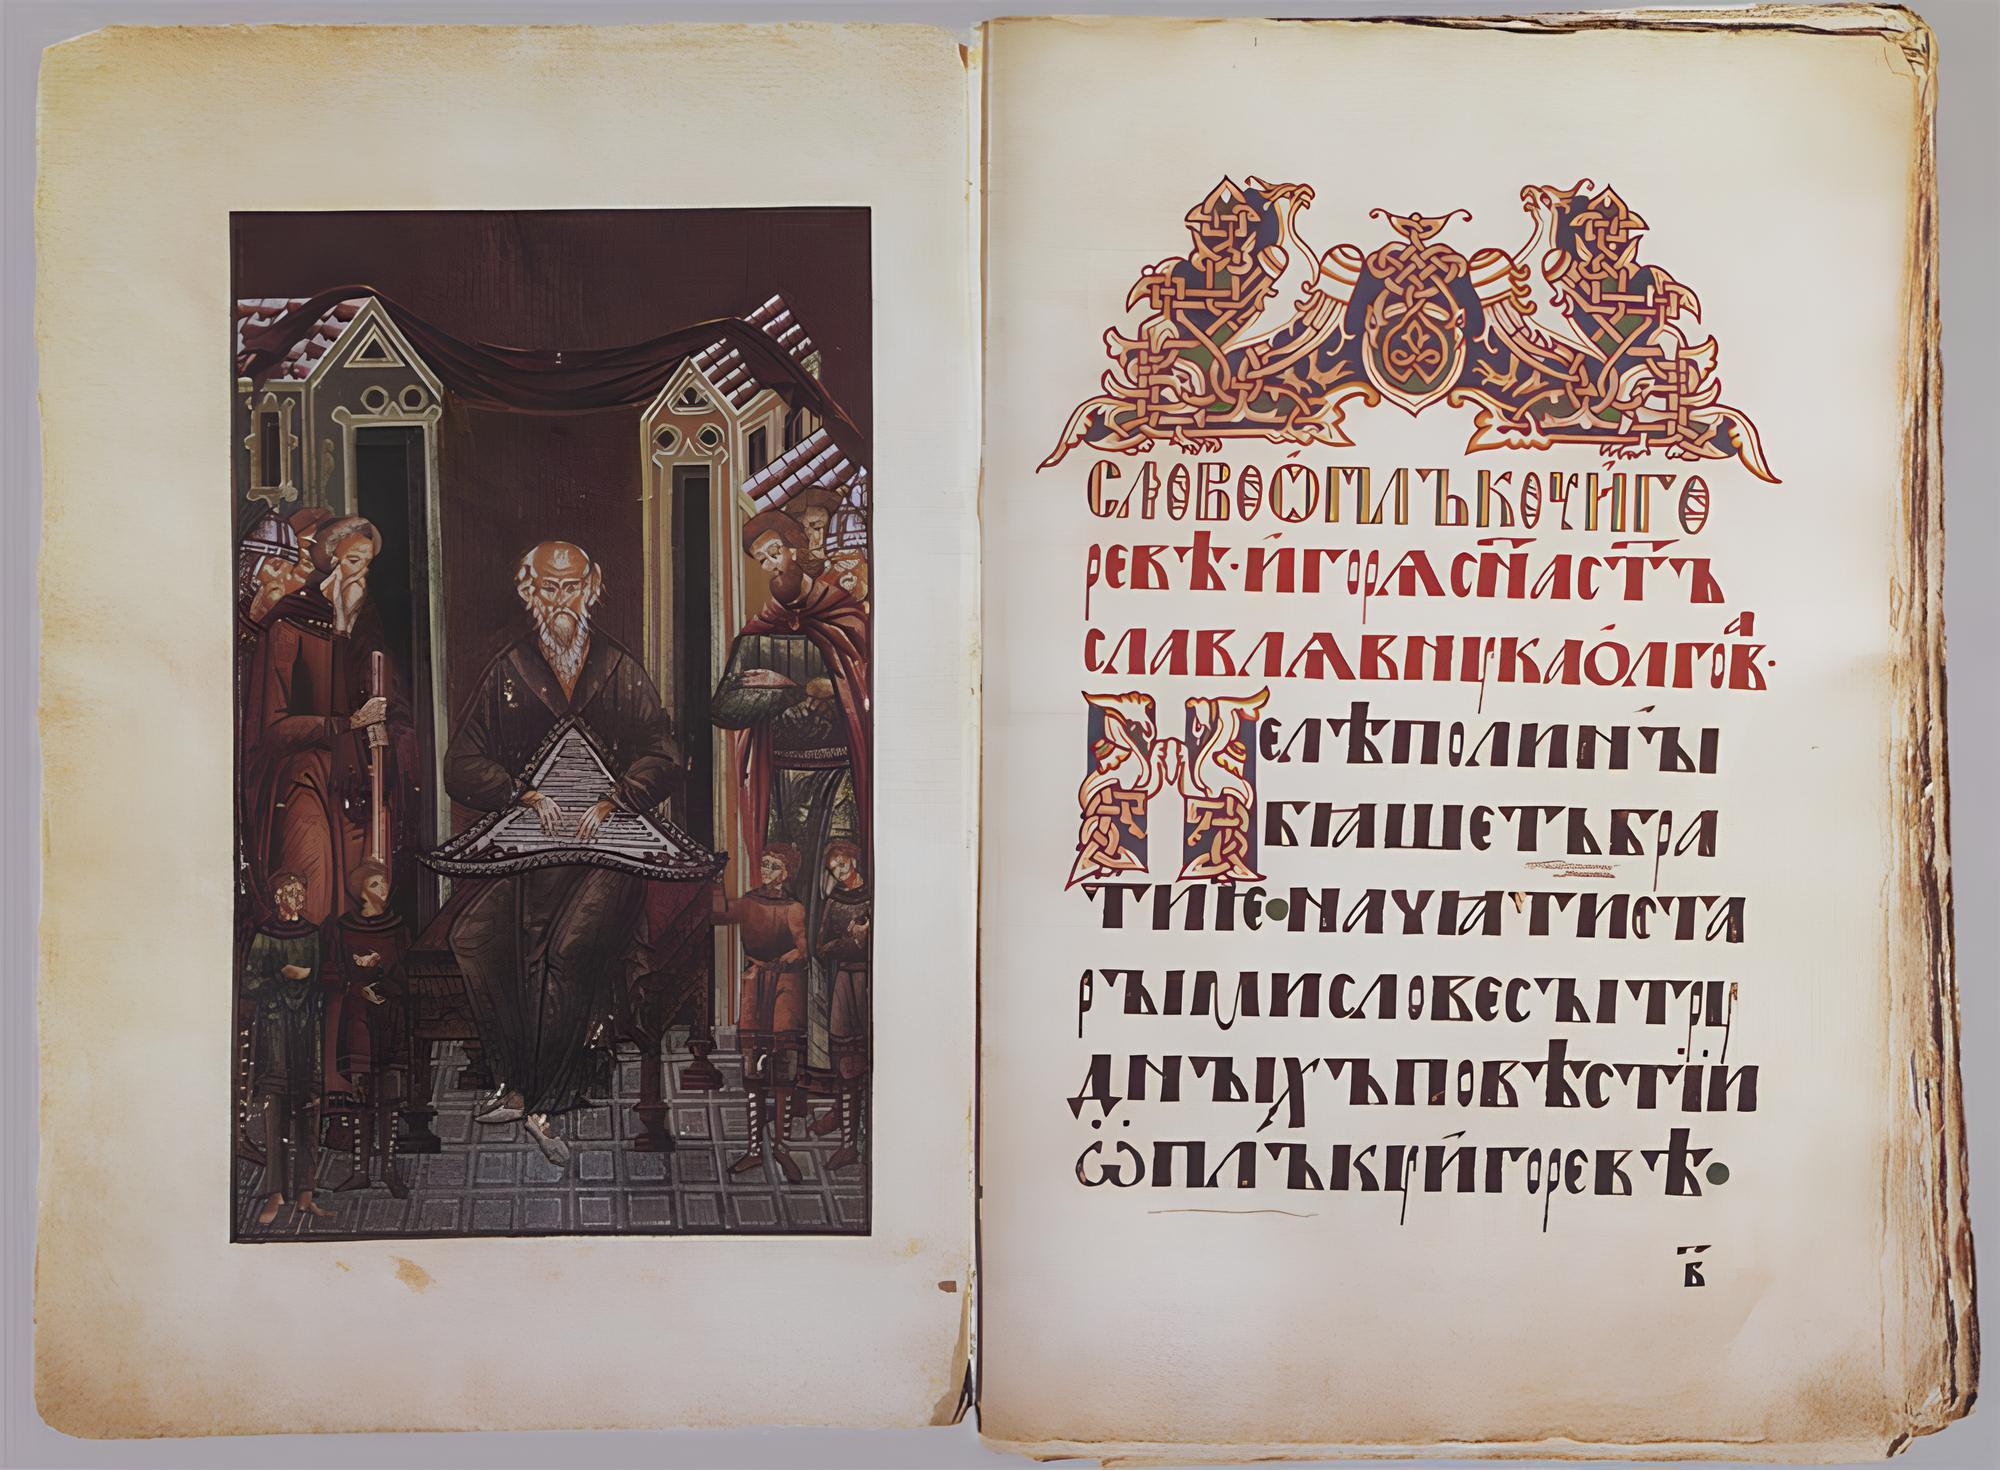 СЛОВОѾПЛЪКОЧИГО
РЕВѢ·ИГОРѦСН҃АСТ҃Ъ
СЛАВЛѦВНЦКАОЛГОВⷶ·
НЕЛѢПОЛИНЫ
БꙖШЕТЬБРА
ТИѤ•НАЧꙖТИСТА
РЪІМИСЛОВЕСЪІТРЦ
ДНЪІХЪПОВѢСТІИ
ѾПЛЪКЦИГОРЕВѢ•
В҃